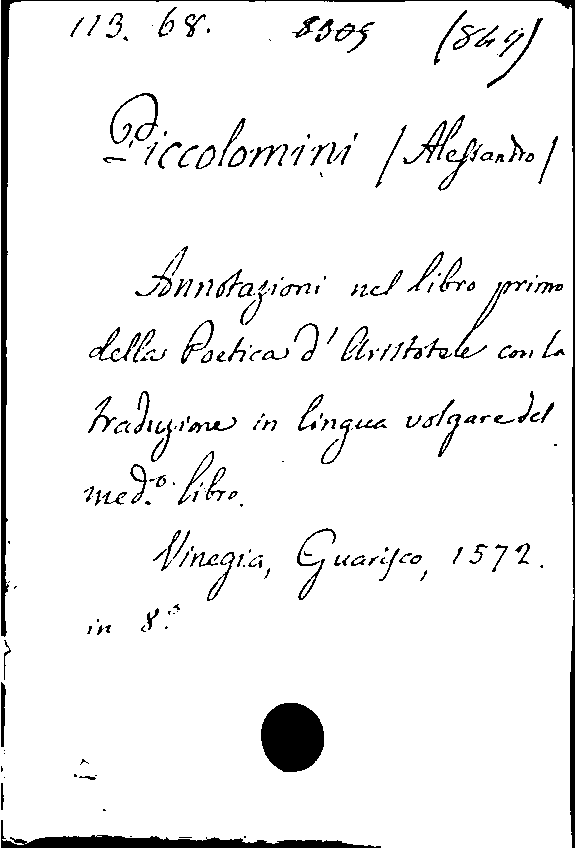 113. 68. 8305 (849)
Piccolomini (Alessandro)
Annotazioni nel libro primo
della Poetica d' Aristotele con la
traduzione in lingua volgare del
med.º libro.
Vinegia, Guarisco, 1572.
in 8.º